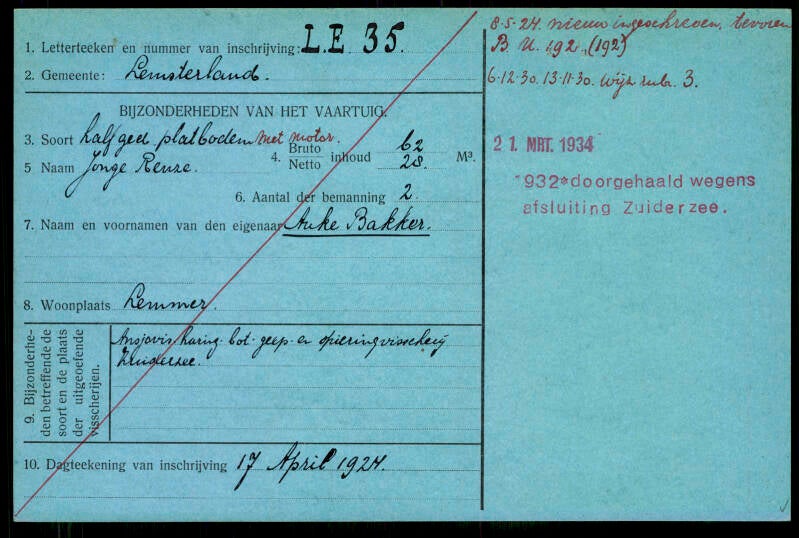 1. Letterteeken en nummer van inschrijving: L.E. 35.
2. Gemeente: Lemsterland.
BIJZONDERHEDEN VAN HET VAARTUIG.
3. Soort half ged platbodem met motor.
4. Bruto Netto inhoud 62 28 M³.
5 Naam Jonge Renze.
6. Aantal der bemanning 2.
7. Naam en voornamen van den eigenaar Auke Bakker.
8. Woonplaats Lemmer.
9. Bijzonderhe-
den betreffende de
soort en de plaats
der uitgeoefende
visscherijen.
Ansjovis haring- bot- geep- en spieringvisscherij
Zuiderzee.
10. Dagteekening van inschrijving 17 April 1924.
8-5-24. nieuw ingeschreven, tevoren
B U. 192. (192)
6-12-30. 13-11-30. Wijz. rub. 3.
21 MRT. 1934
1932 doorgehaald wegens
afsluiting Zuiderzee.